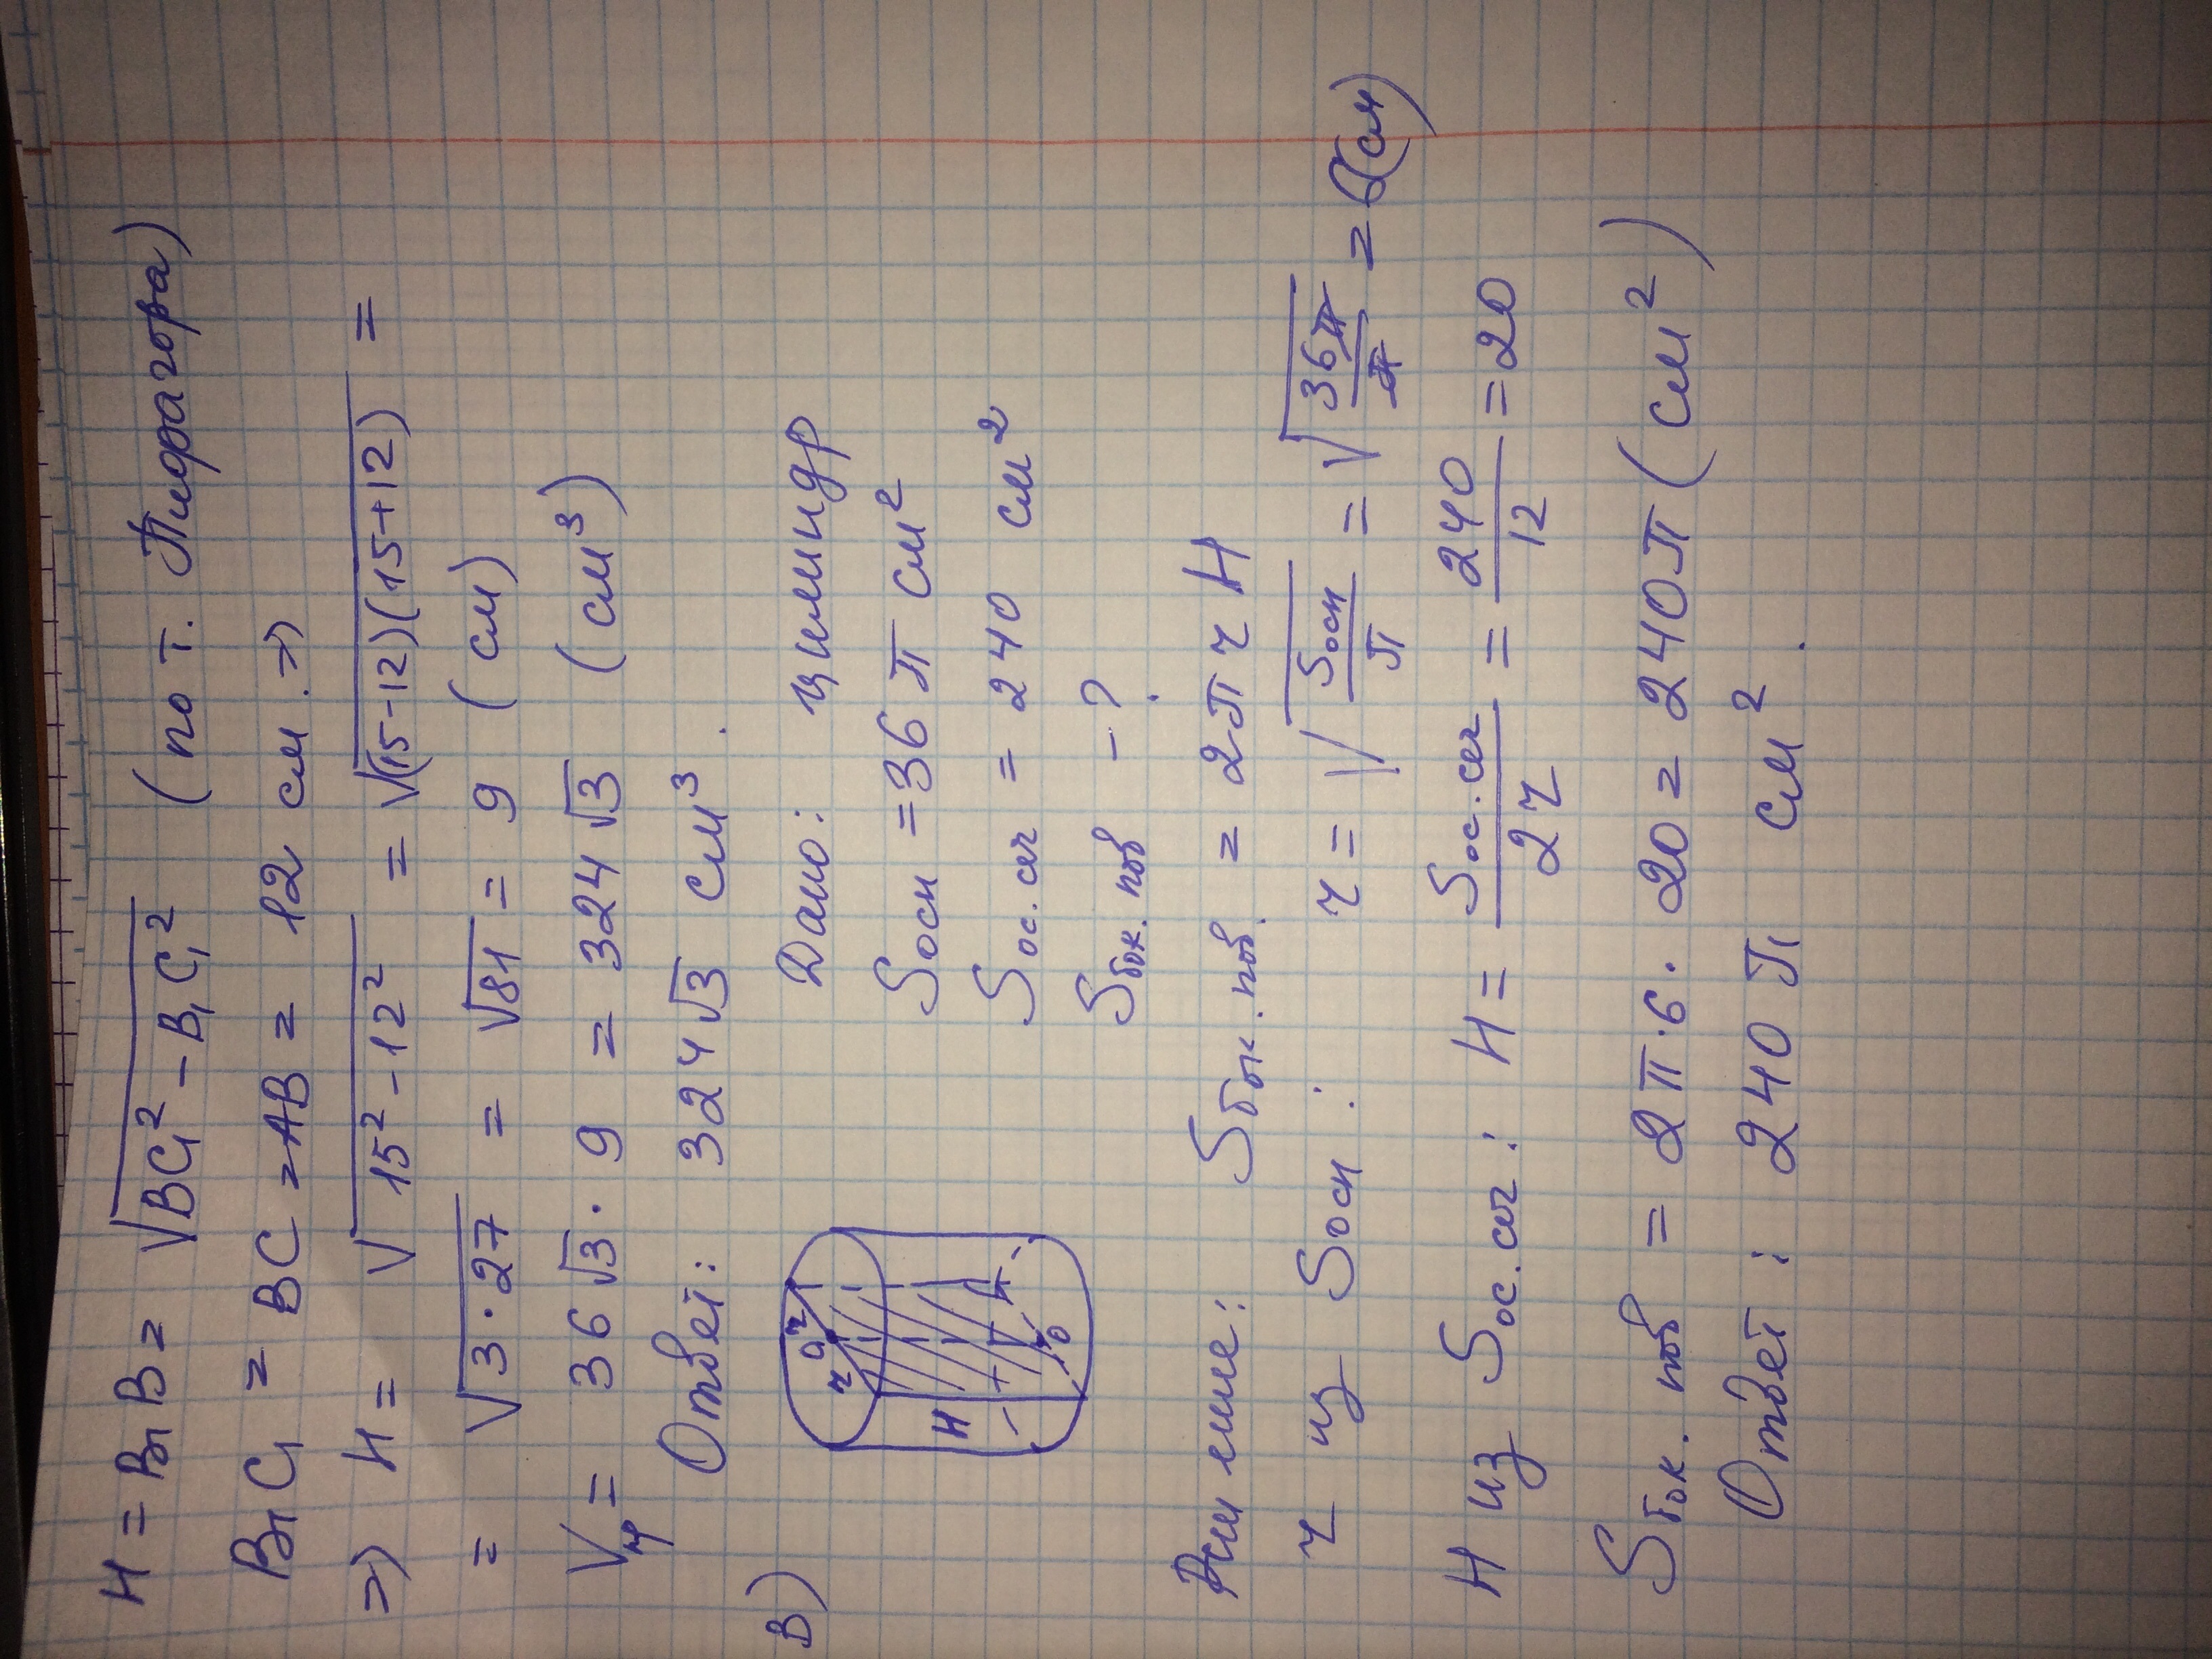 H = B₁B = √(BC₁² - B₁C₁²) (по т. Пифагора)
B₁C₁ = BC = AB = 12 см. ⇒
⇒ H = √(15² - 12²) = √((15-12)(15+12)) =
= √(3·27) = √81 = 9 (см)
Vпр = 36√3 · 9 = 324√3 (см³)
Ответ: 324√3 см³.
В) Дано: цилиндр
Sосн = 36π см²
Sос. сеч = 240 см²
Sбок. пов. - ?
r O r
H
O
Решение: Sбок. пов. = 2πrH
r из Sосн: r = √(Sосн/π) = √(36π/π) = 6(см)
H из Sос. сеч: H = Sос. сеч/2r = 240/12 = 20
Sбок. пов = 2π·6·20 = 240π (см²)
Ответ: 240π см².